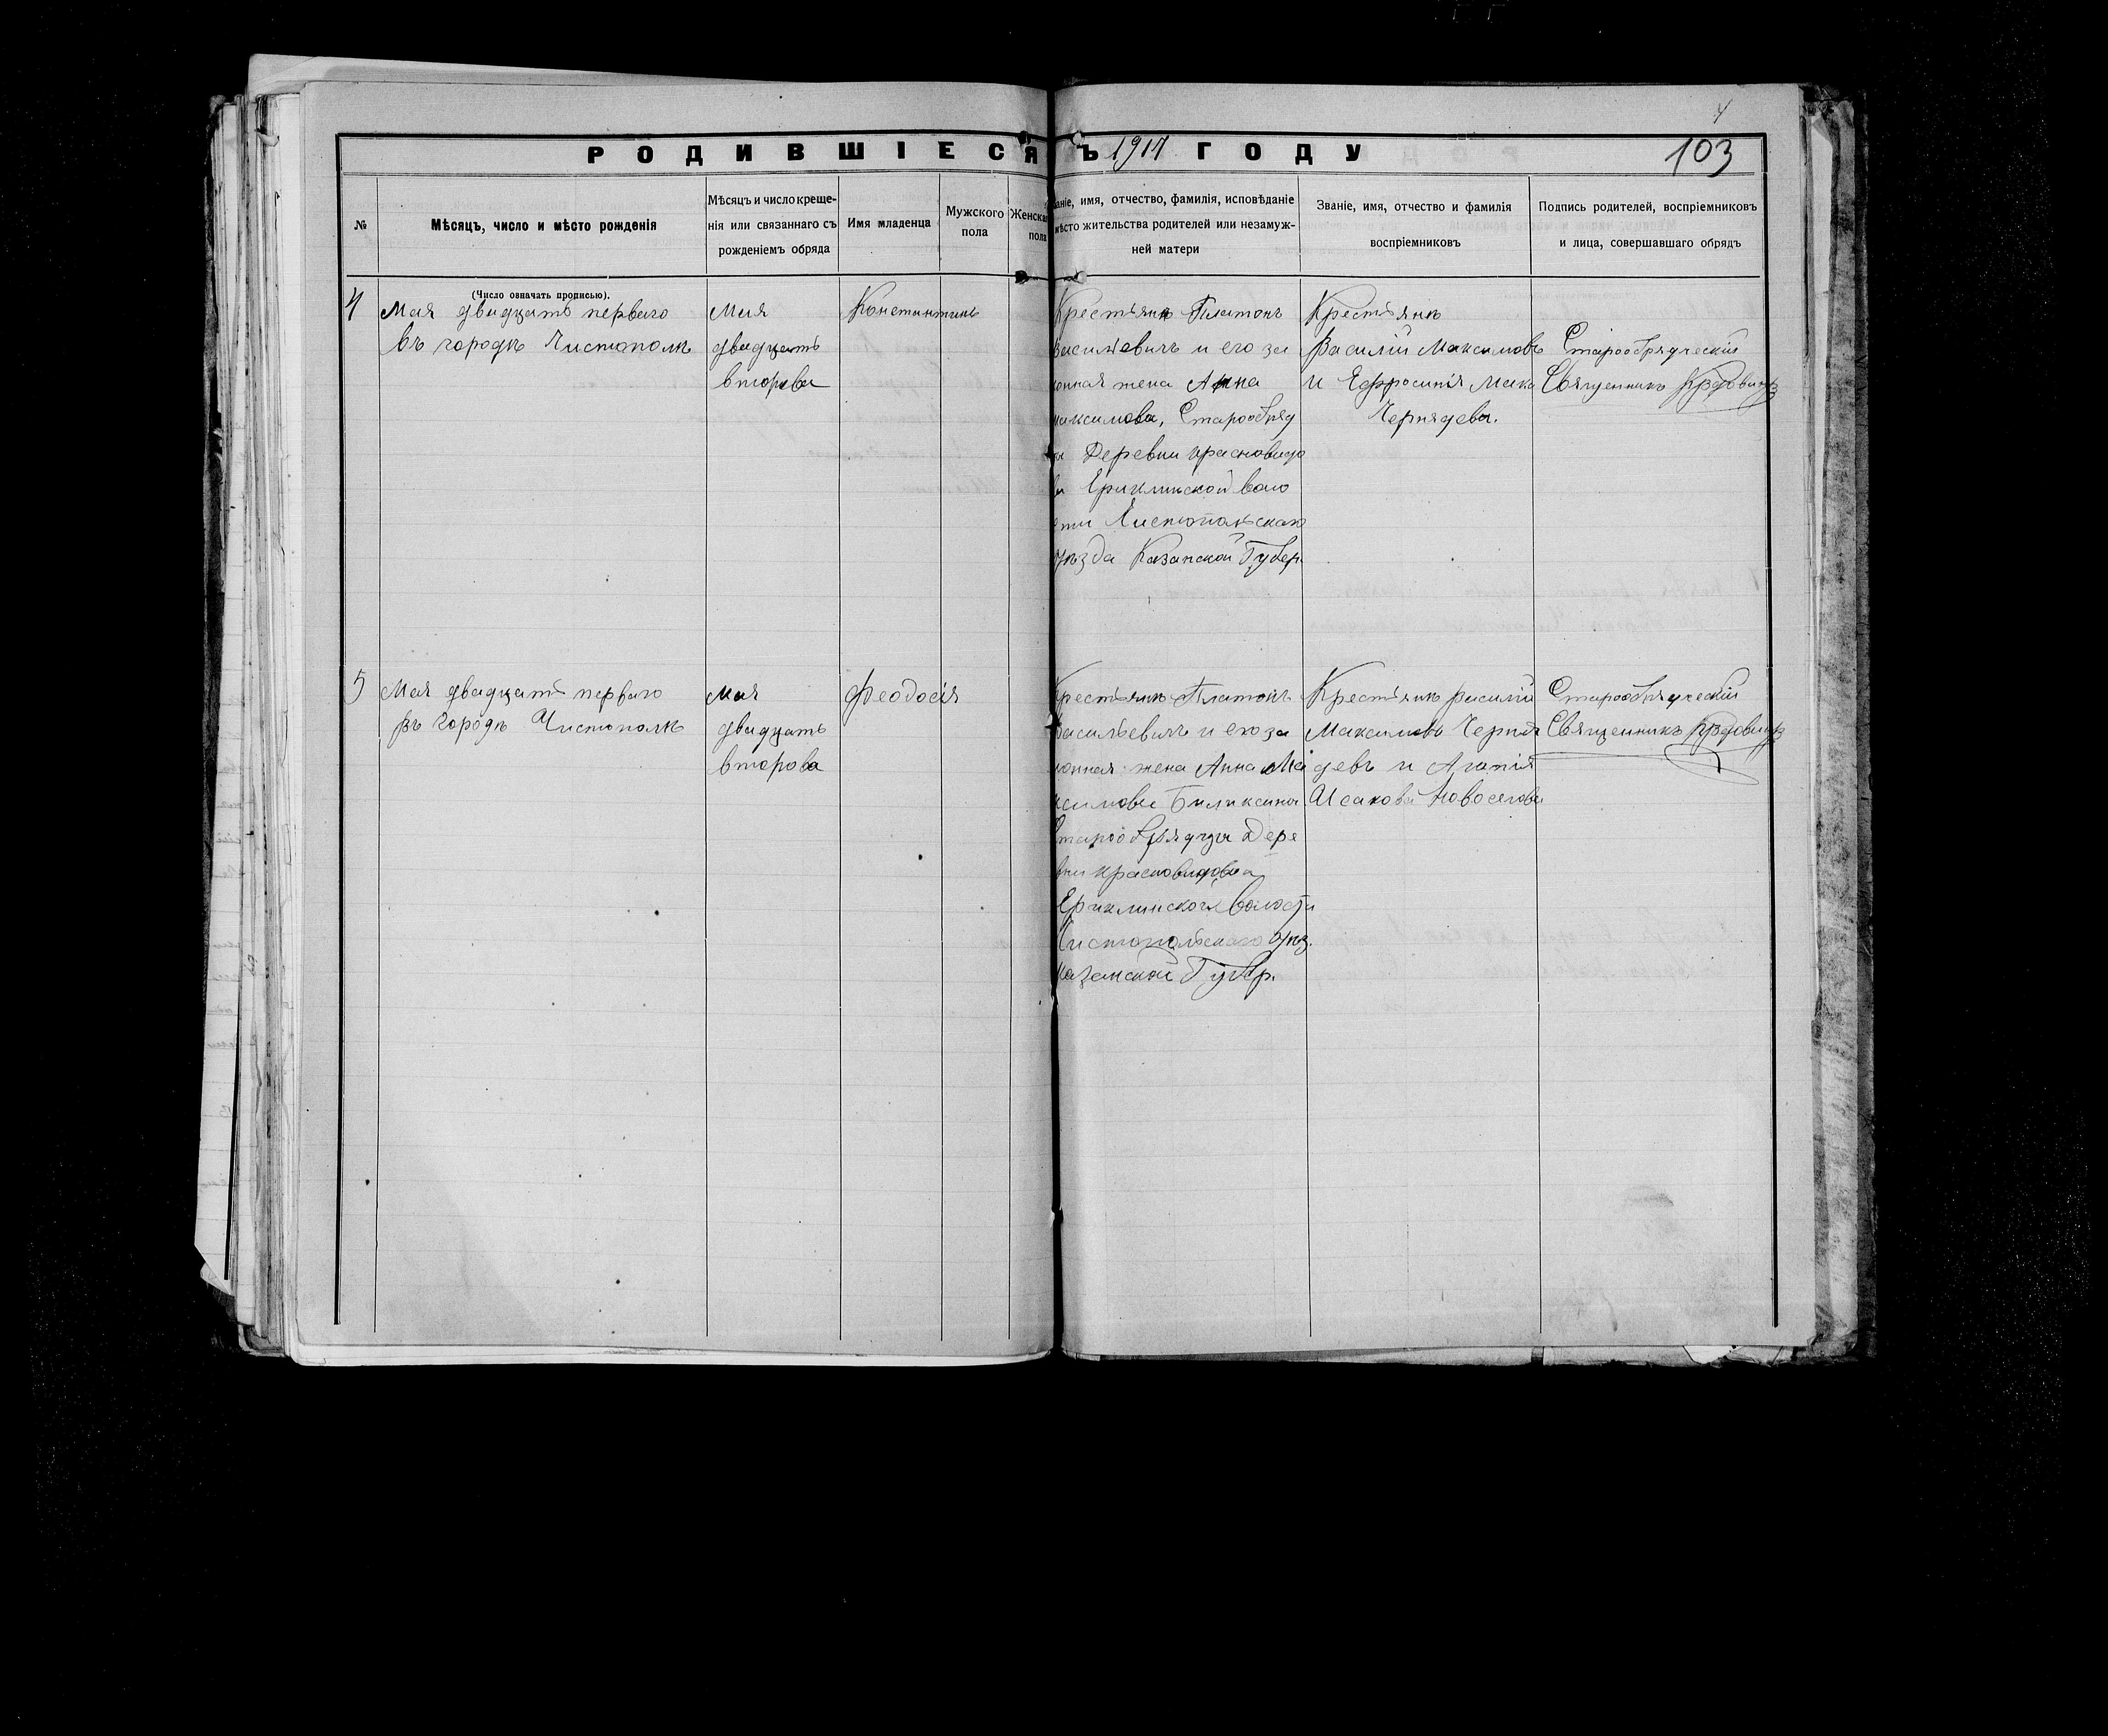 4
РОДИВШІЕСЯ
Ъ 1917 ГОДУ
103
№
Мѣсяцъ, число и мѣсто рожденія
Мѣсяцъ и число креще-
нія или связаннаго съ
рожденіемъ обряда
Имя младенца
Мужского
пола
Женска
пола
ваніе, имя, отчество, фамилія, исповѣданіе
мѣсто жительства родителей или незамуж-
ней матери
Званіе, имя, отчество и фамилія
воспріемниковъ
Подпись родителей, воспріемниковъ
и лица, совершавшаго обрядъ
(Число означать прописью).
4
Мая двадцать перваго
въ городѣ Чистополѣ
Мая
двадцать
второва
Константинъ
Крестьянъ Платонъ
Васильевичъ и его за
конная жена Анна
Максимова, Старообряд
Деревни Красновидо
ва Ериклинской воло
сти Чистопольскаго
уѣзда Казанской Губер
Крестьянъ
Василій Максимовъ
и Ефросинія Макс
Чернядева.
Старообрядческій
Священникъ
5
Мая двадцать перваго
Въ Городѣ Чистополѣ
Мая
двадцать
второва
Феодосія
Крестьянъ Платонъ
Васильевичъ и его за
конная жена Анна Ма
ксимова
Старообрядцы Дере
вни Красновидова
Ериклинской Волости
Чистопольскаго Уѣз.
Казанской Губер.
Крестьянъ Василій
Максимовъ Черня
девъ и Агапія
Исакова Новоселова
Старообрядческій
Священникъ